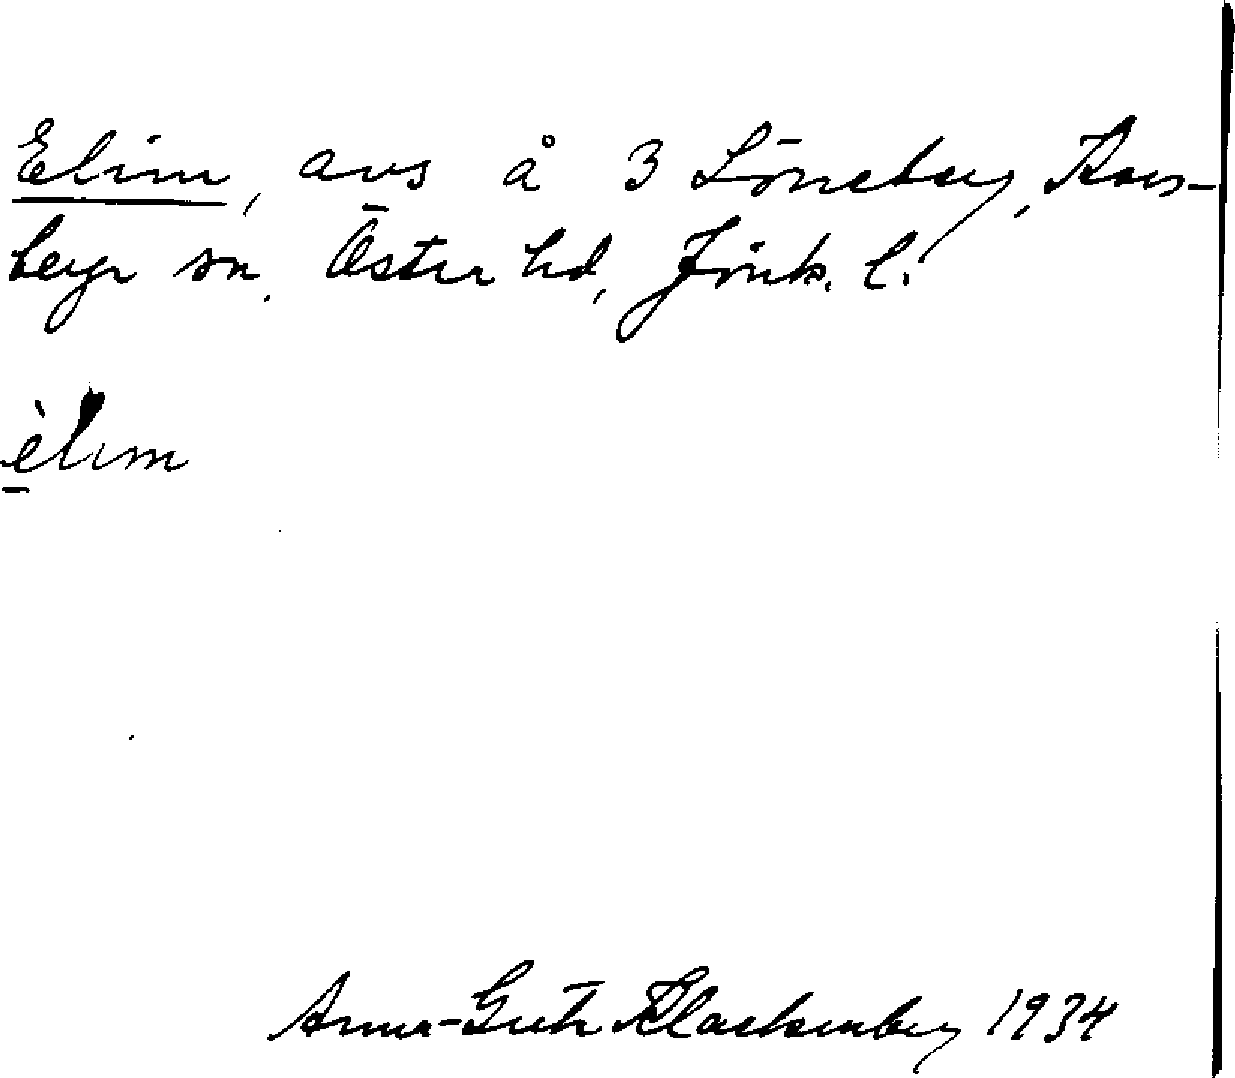 Elim, avs å 3 Lönneberg, Kors-
berga sn. Östra hd, Jönk. l.
èlim
Anna-Greta Klackenberg 1934